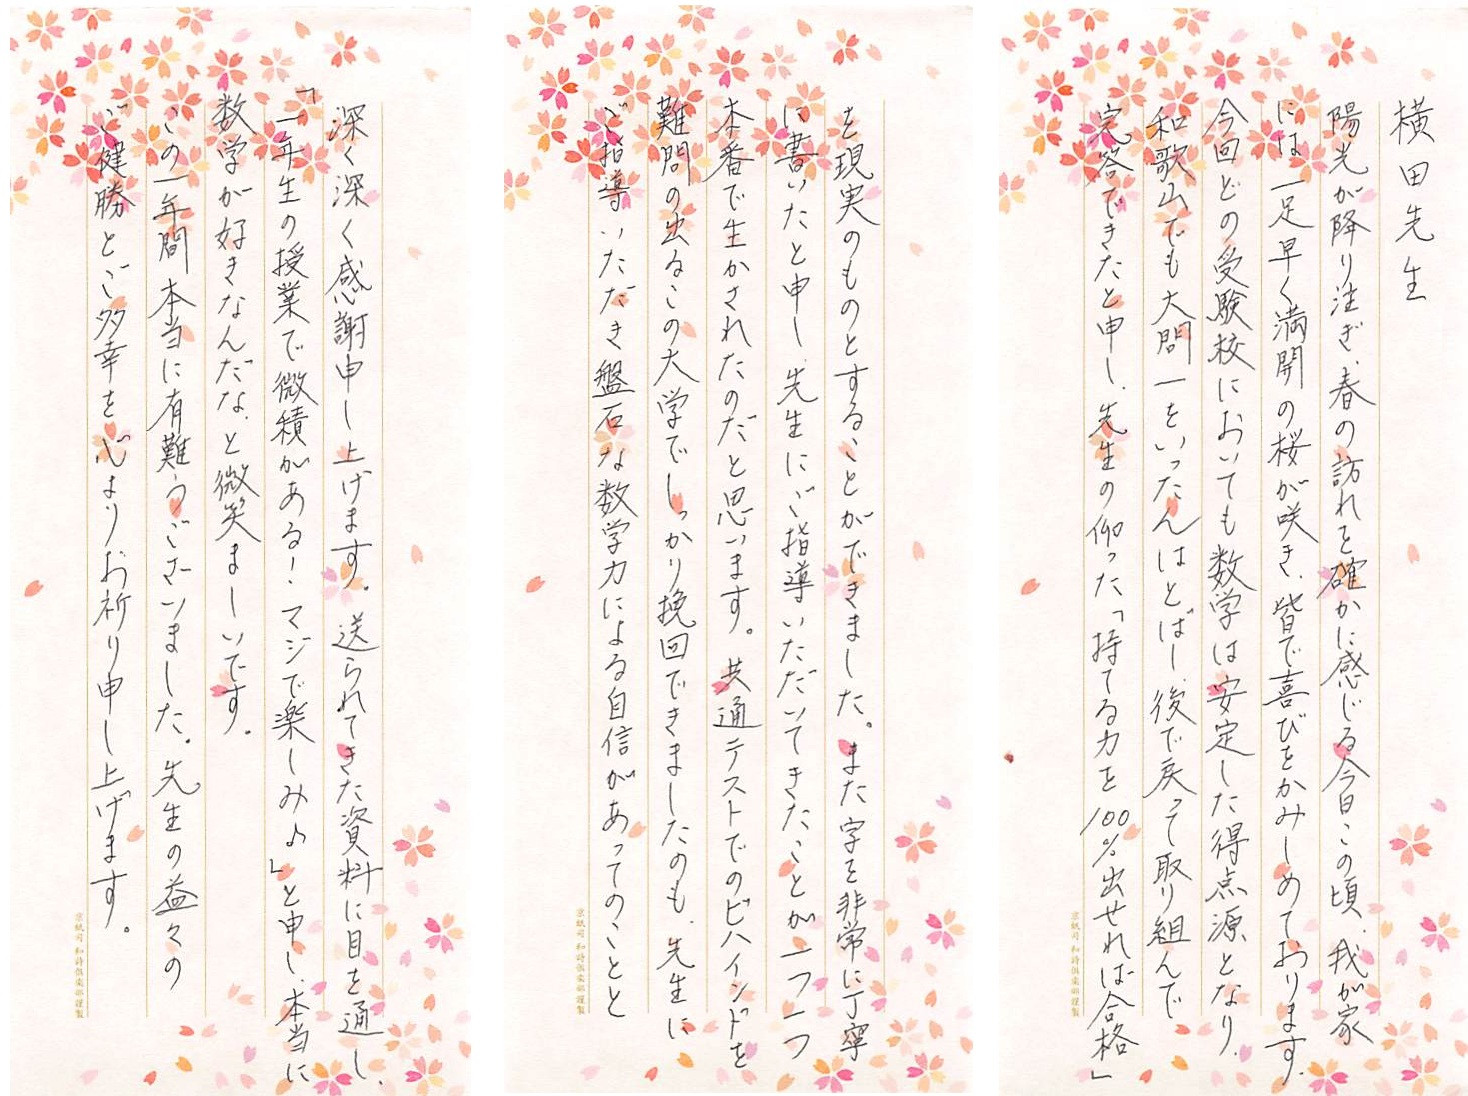 横田先生
陽光が降り注ぎ、春の訪れを確かに感じる今日この頃、我が家
には一足早く満開の桜が咲き、皆で喜びをかみしめております。
今回どの受験校においても数学は安定した得点源となり、
和歌山でも大問一をいったんはとばし、後で戻って取り組んで
完答できたと申し、先生の仰った「持てる力を100%出せれば合格」
を現実のものとすることができました。また字を非常に丁寧
に書いたと申し、先生にご指導いただいてきたことが一つ一つ
本番で生かされたのだと思います。共通テストでのビハインドを
難問の出るこの大学でしっかり挽回できましたのも、先生に
ご指導いただき盤石な数学力による自信があってのことと
京紙司 和詩倶楽部謹製
深く深く感謝申し上げます。送られてきた資料に目を通し、
「一年生の授業で微積がある！マジで楽しみ♪」と申し、本当に
数学が好きなんだな、と微笑ましいです。
この一年間本当に有難うございました。先生の益々の
ご健勝とご多幸を心よりお祈り申し上げます。
京紙司 和詩倶楽部謹製
京紙司 和詩倶楽部謹製